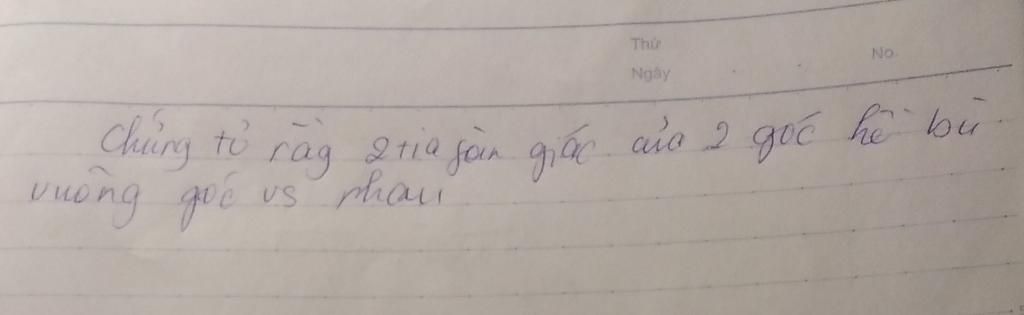 Thứ
Ngày
No.
Chứng tỏ rằg 2 tia fân giác của 2 góc kề bù
vuông góc vs nhau